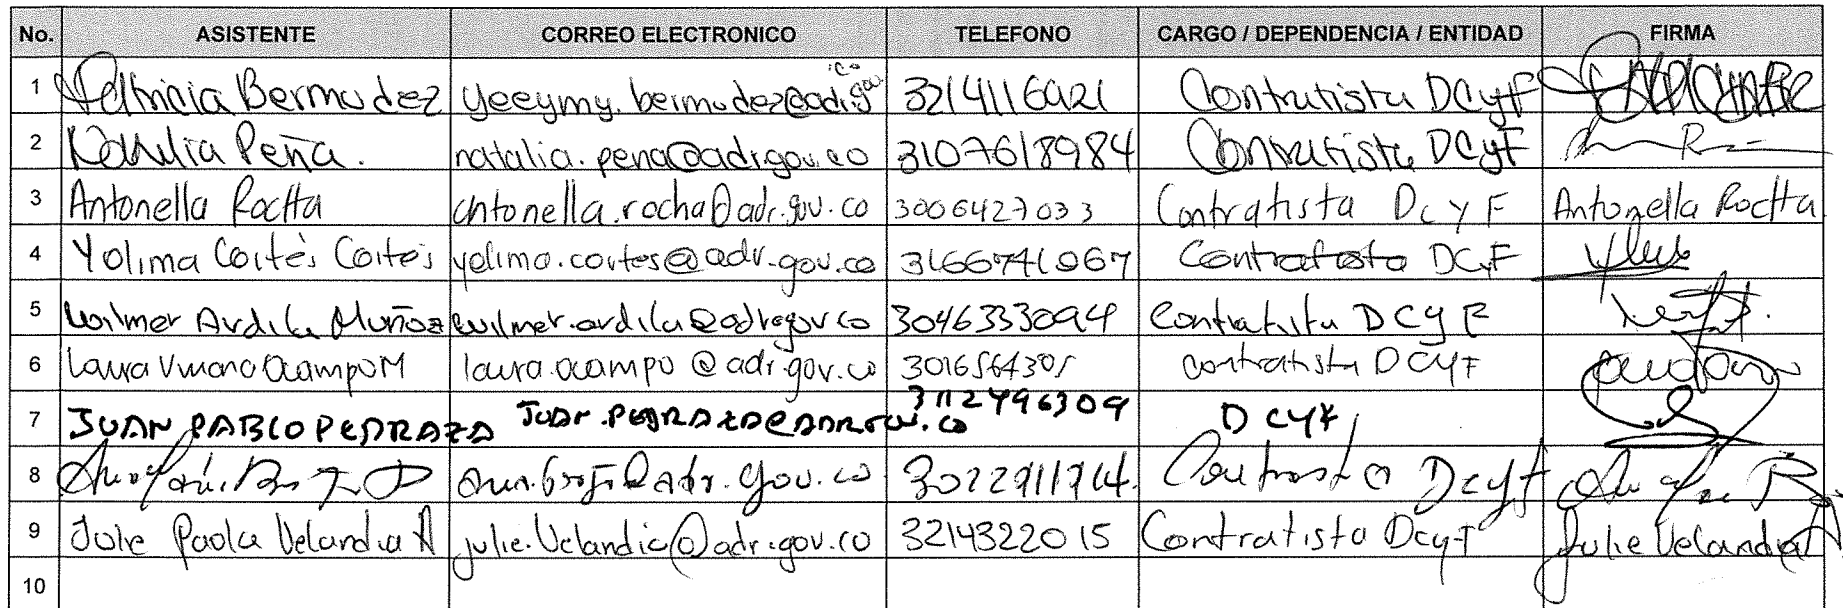 No. ASISTENTE CORREO ELECTRONICO TELEFONO CARGO / DEPENDENCIA / ENTIDAD FIRMA
1 Patricia Bermudez yeeymy.bermudez@adr.gov.co 3214116921 Contratista DCyF
2 Natalia Peña. natalia.pena@adr.gov.co 3107618984 Contratista DCyF
3 Antonella Rocha antonella.rocha@adr.gov.co 3006427033 Contratista DCYF Antonella Rocha
4 Yolima Cortés Cortés yolima.cortes@adr.gov.co 3166741067 Contratista DCyF
5 Wilmer Ardila Muñoz wilmer.ardila@adr.gov.co 3046333094 Contratista DCyF
6 Laura Viviana Ocampo M laura.ocampo@adr.gov.co 3016564305 Contratista DCYF
7 JUAN PABLO PEDRAZA JUAN.PEDRAZA@ADR.GOV.CO 3112496309 DCYF
8 3022911714. Contratista DCyF
9 Julie Paola Velandia A julie.velandia@adr.gov.co 3214322015 Contratista DCyF Julie Velandia A
10